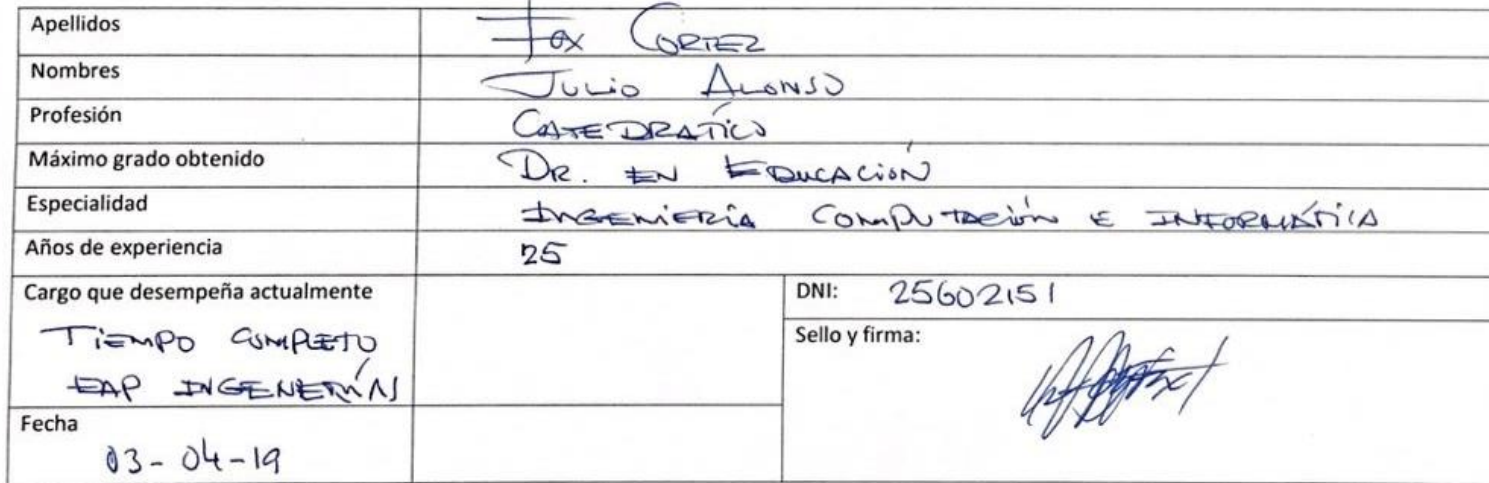 Apellidos Fox Cortez
Nombres Julio Alonso
Profesión CATEDRATÍCO
Máximo grado obtenido DR. EN EDUCACIÓN
Especialidad INGENIERÍA COMPUTACIÓN E INFORMÁTICA
Años de experiencia 25
Cargo que desempeña actualmente
TIEMPO COMPLETO
EAP INGENERÍAS
DNI: 25602151
Sello y firma:
Fecha
03-04-19